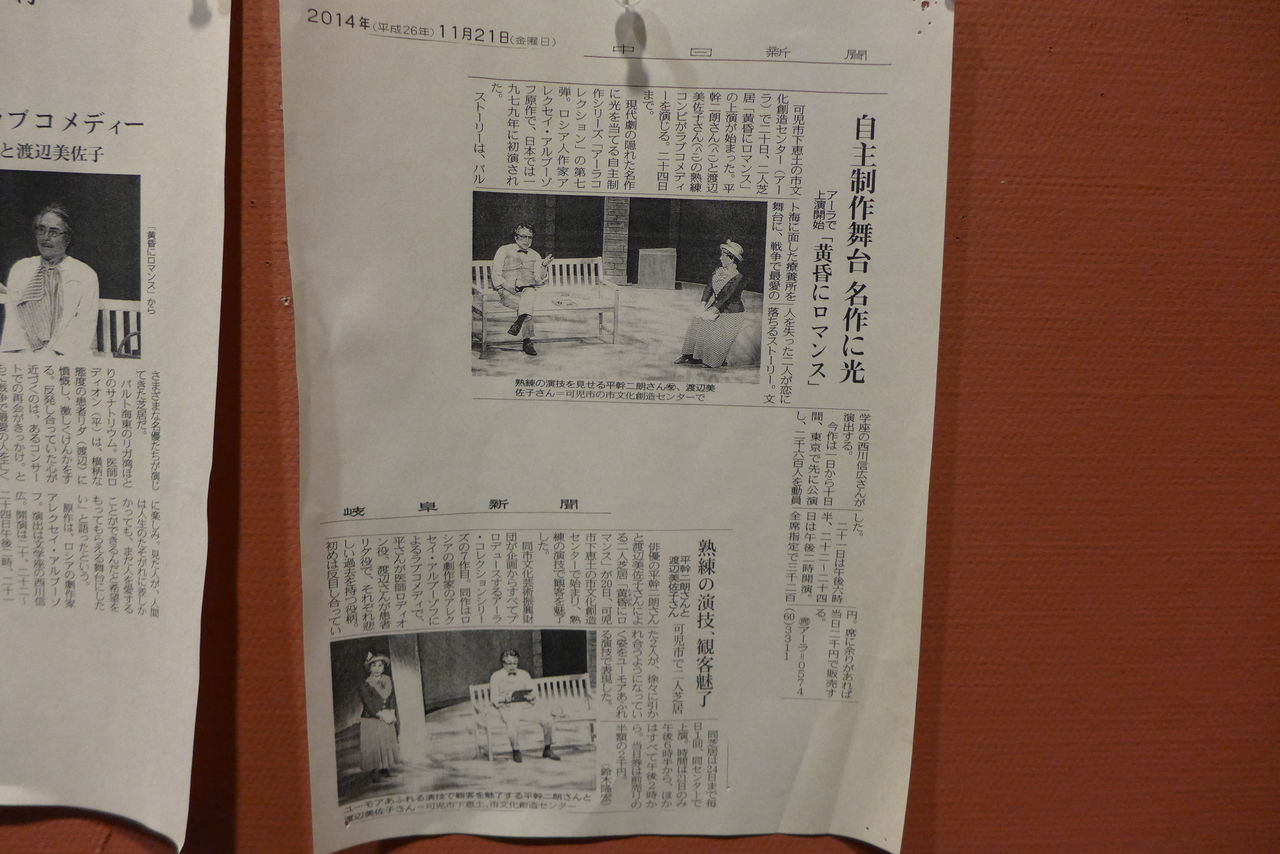 ブコメディー
と渡辺美佐子
「黄昏にロマンス」から
さまざまな名優たちが演じ
てきた芝居だ。
バルト海東のリガ湾ほと
りのサナトリウム。医師ロ
ディオン(平)は、横柄な
態度の患者リダ(渡辺)に
憤慨し、激しくけんかをす
る。反発し合っていた心が
近づくのは、あるコンサー
トでの再会がきっかけ。と
もに戦争で最愛の人を亡く
に楽しみ。見た人が、人間
は人生のたそがれに差しか
かっても、まだ人を愛する
ことができるんだと希望を
もってもらえる舞台にした
い」と語ったという。
原作は、ロシアの劇作家
アレクセイ・アルブーゾ
フ。演出は文学座の西川信
広。開演は二十、二十二～
二十四日午後二時、二十一
2014年(平成26年)11月21日(金曜日)
中日新聞
自主制作舞台 名作に光
アーラで
上演開始
「黄昏にロマンス」
可児市下恵土の市文
化創造センター(アー
ラ)で二十日、二人芝
居「黄昏にロマンス」
の上演が始まった。平
幹二朗さん(八一)と渡辺
美佐子さん(八二)の熟練
コンビがラブコメディ
ーを演じる。二十四日
まで。
現代劇の隠れた名作
に光を当てる自主制
作シリーズ「アーラコ
レクション」の第七
弾。ロシア人作家ア
レクセイ・アルブーゾ
フ原作で、日本では一
九七九年に初演され
た。
ストーリーは、バル
ト海に面した療養所を
舞台に、戦争で最愛の
人を失った二人が恋に
落ちるストーリー。文
学座の西川信広さんが
演出する。
今作は一日から十日
間、東京で先に公演
し、二千六百人を動員
した。
二十一日は午後六時
半、二十二～二十四
日は午後二時開演。
全席指定で三千二百
円。席に余りがあれば
当日二千円で販売す
る。
㉄アーラ=0574
(60)3311
熟練の演技を見せる平幹二朗さん㊧、渡辺美
佐子さん=可児市の市文化創造センターで
岐阜新聞
熟練の演技、観客魅了
平幹二朗さんと
渡辺美佐子さん
可児市で二人芝居
俳優の平幹二朗さん
と渡辺美佐子さんによ
る二人芝居「黄昏にロ
マンス」が20日、可児
市下恵土の市文化創造
センターで始まり、熟
練の演技で観客を魅了
した。
同市文化芸術振興財
団が企画からすべてプ
ロデュースするアーラ
・コレクションシリー
ズの7作目。同作はロ
シアの劇作家のアレク
セイ・アルブーゾフに
よるラブコメディで、
平さんが医師ロディオ
ン役、渡辺さんが患者
リダ役で、それぞれ悲
しい過去を持つ役柄。
初めは反目し合ってい
た2人が、徐々に引か
れ合うようになってい
く姿をユーモアあふれ
る演技で表現した。
同芝居は24日まで毎
日1回、同センターで
上演。時間は21日のみ
午後6時半から、ほか
はすべて午後2時か
ら。当日券は前売りの
半額の2千円。
(鈴木隆宏)
ユーモアあふれる演技で観客を魅了する平幹二朗さんと
渡辺美佐子さん=可児市下恵土、市文化創造センター